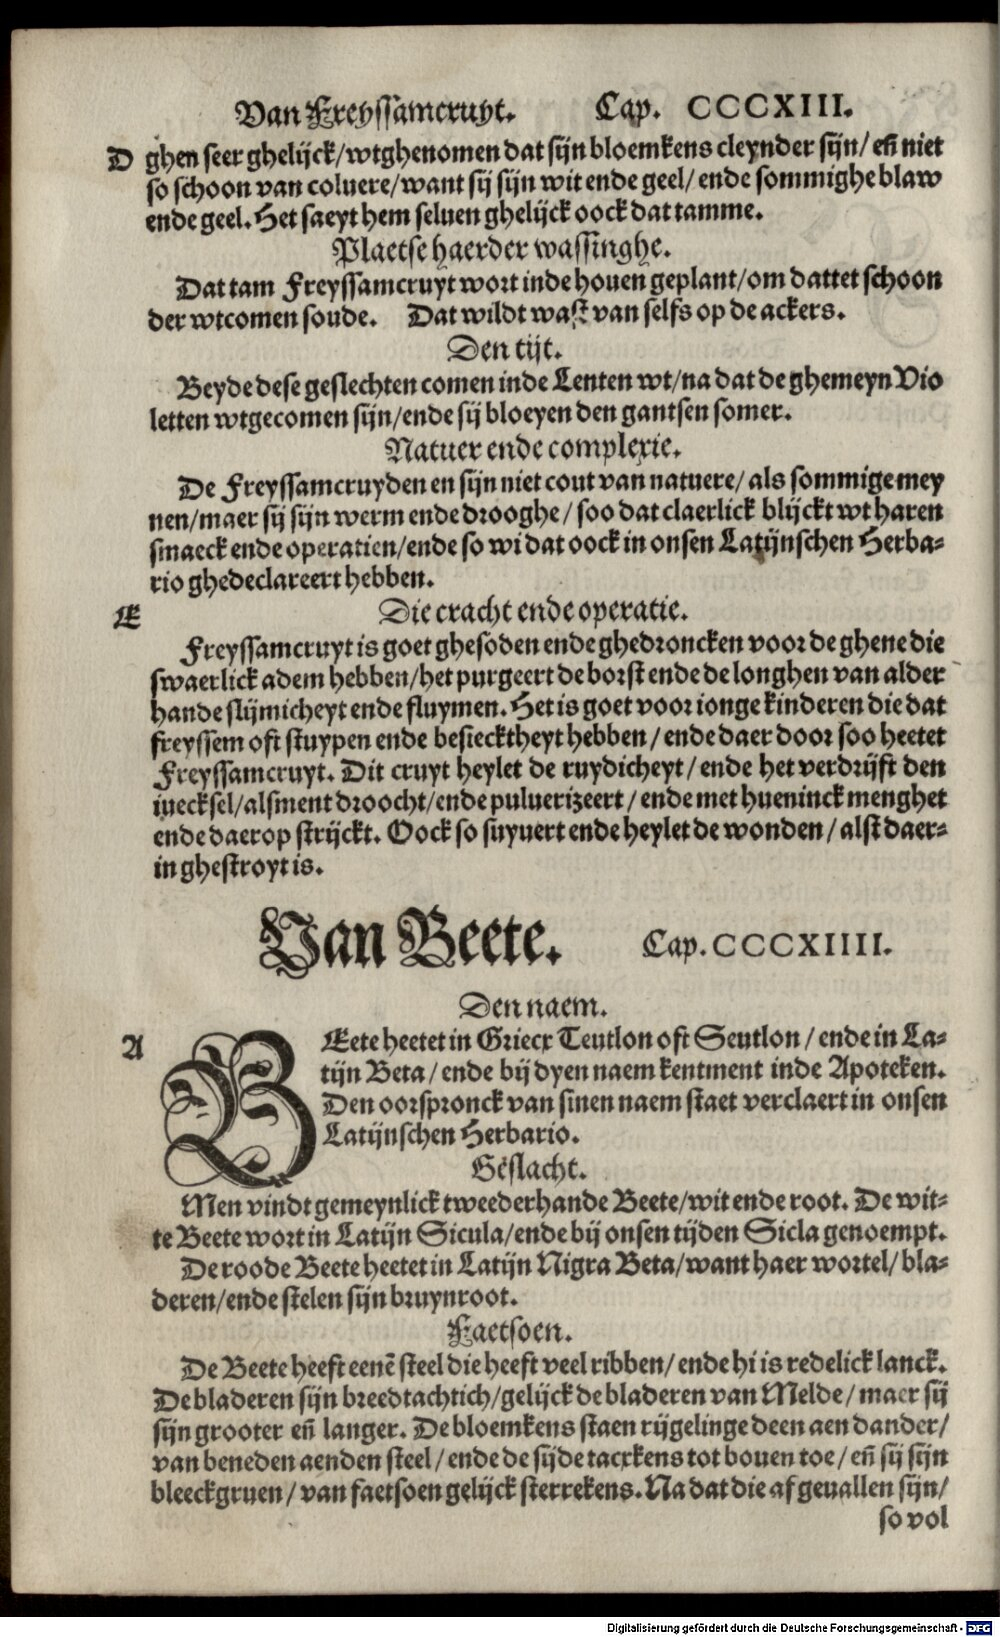 Van Freyssamcruyt. Cap. CCCXIII.
D ghen seer ghelijck/wtghenomen dat sijn bloemkens cleynder sijn/ eñ niet
so schoon van coluere/want sij sijn wit ende geel/ ende sommighe blaw
ende geel. Het saeyt hem seluen ghelijck oock dat tamme.
Plaetse haerder wassinghe.
Dat tam Freyssamcruyt wort inde houen geplant/om dattet schoon
der wtcomen soude. Dat wildt wast van selfs op de ackers.
Den tijt.
Beyde dese geslechten comen inde Lenten wt/na dat de ghemeyn Vio
letten wtgecomen sijn/ende sij bloeyen den gantsen somer.
Natuer ende complexie.
De Freyssamcruyden en sijn niet cout van natuere/ als sommige mey
nen/maer sij sijn werm ende drooghe/ soo dat claerlick blijckt wt haren
smaeck ende operatien/ende so wi dat oock in onsen Latijnschen Herba-
rio ghedeclareert hebben.
E
Die cracht ende operatie.
Freyssamcruyt is goet ghesoden ende ghedroncken voor de ghene die
swaerlick adem hebben/het purgeert de borst ende de longhen van alder
hande slijmicheyt ende fluymen. Het is goet voor ionge kinderen die dat
freyssem oft stuypen ende besiecktheyt hebben/ ende daer door soo heetet
Freyssamcruyt. Dit cruyt heylet de ruydicheyt/ ende het verdrijft den
iuecksel/alsment droocht/ende puluerizeert/ ende met hueninck menghet
ende daerop strijckt. Oock so suyuert ende heylet de wonden/ alst daer-
in ghestroyt is.
Van Beete. Cap. CCCXIIII.
Den naem.
A
BEete heetet in Griecx Teutlon oft Seutlon/ ende in La-
tijn Beta/ ende bij dyen naem kentment inde Apoteken.
Den oorspronck van sinen naem staet verclaert in onsen
Latijnschen Herbario.
Geslacht.
Men vindt gemeynlick tweederhande Beete/wit ende root. De wit-
te Beete wort in Latijn Sicula/ende bij onsen tijden Sicla genoempt.
De roode Beete heetet in Latijn Nigra Beta/want haer wortel/ bla-
deren/ende stelen sijn bruynroot.
Faetsoen.
De Beete heeft eenē steel die heeft veel ribben/ ende hi is redelick lanck.
De bladeren sijn breedtachtich/gelijck de bladeren van Melde/ maer sij
sijn grooter eñ langer. De bloemkens staen rijgelinge deen aen dander/
van beneden aenden steel/ ende de sijde tacxkens tot bouen toe/ eñ sij sijn
bleeckgruen/ van faetsoen gelijck sterrekens. Na dat die af geuallen sijn/
so vol
Digitalisierung gefördert durch die Deutsche Forschungsgemeinschaft - DFG